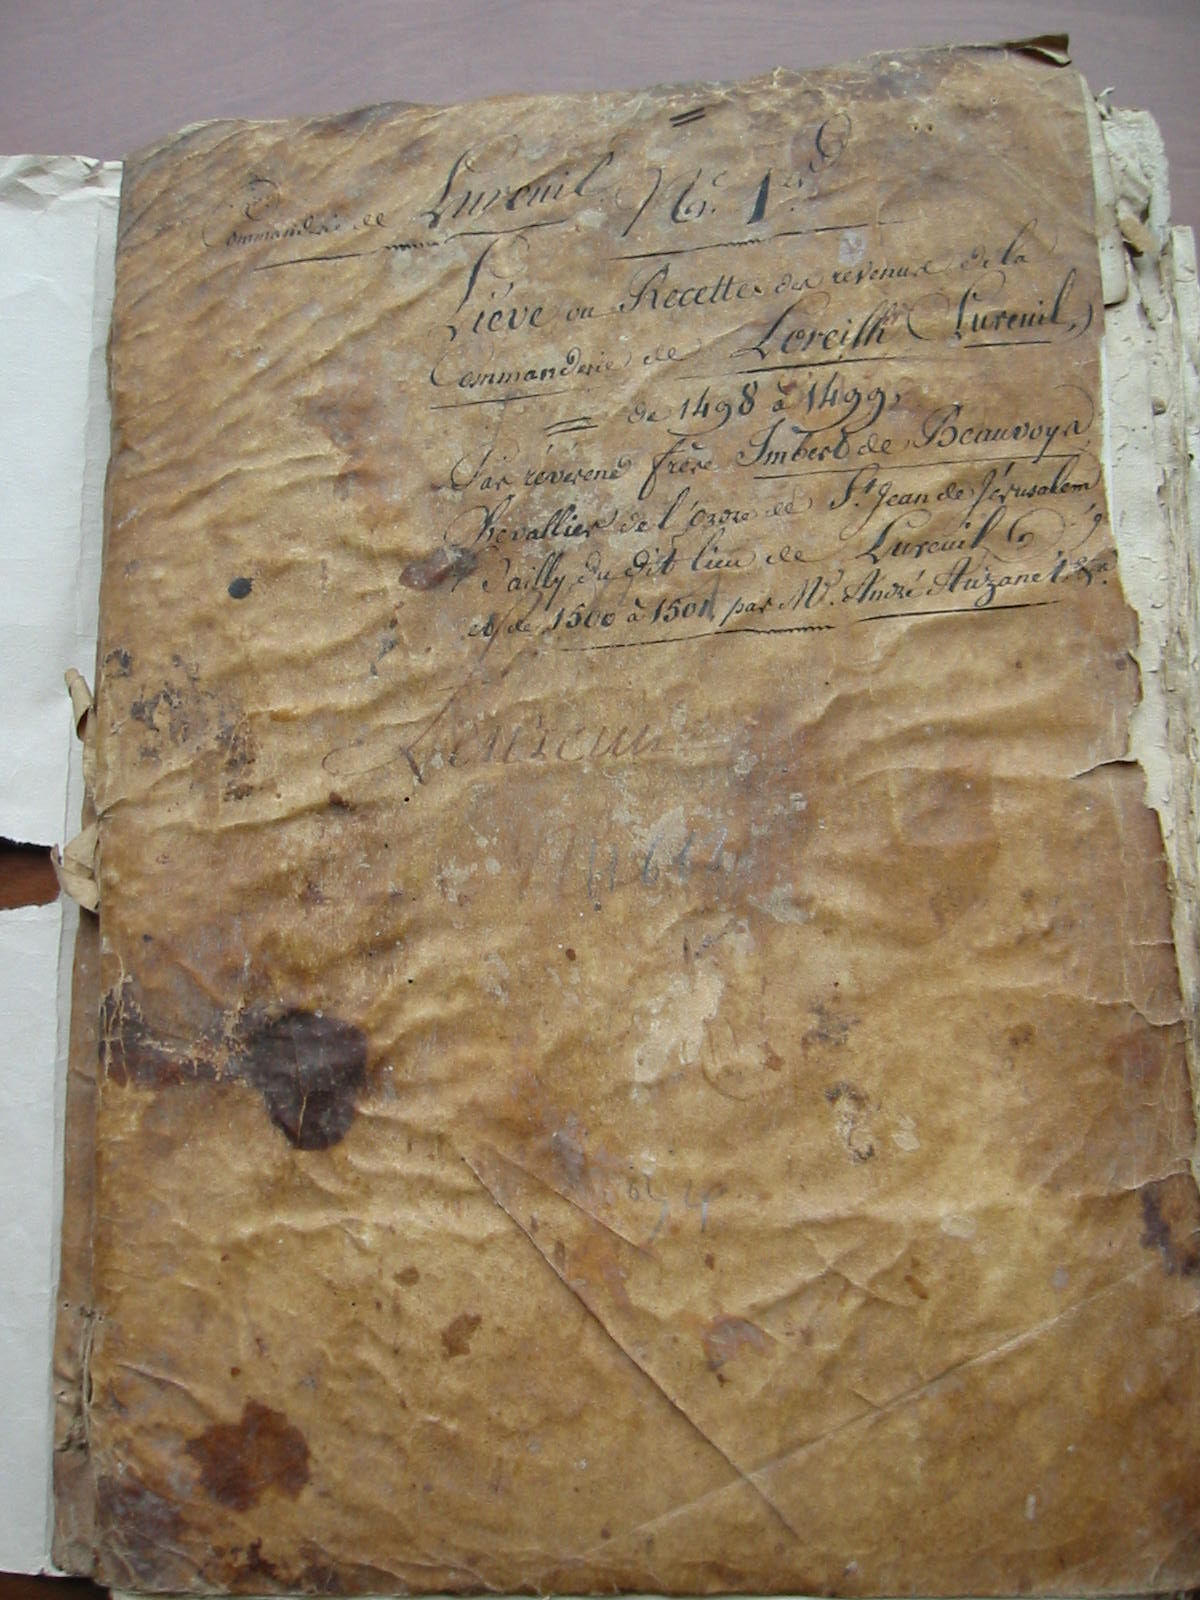 Commanderie de Lureuil. N.° 1.er
Liéve ou Recettes des revenus de la
Commanderie de Loreilh (Lureuil,)
de 1498 à 1499,
Par révérend frère Imbert de Beauvoys
Chevallier de l'ordre de St Jean de Jérusalem
Bailly du dit lieu de Lureuil
et de 1500 à 1501, par Mr. André Auzanet